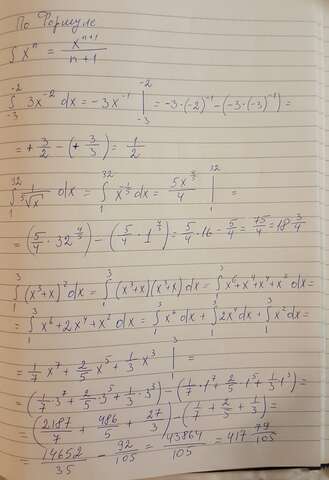 По формуле
∫xⁿ = xⁿ⁺¹/(n+1)
∫₋₃⁻² 3x⁻² dx = -3x⁻¹ |₋₃⁻² = -3·(-2)⁻¹ - (-3·(-3)⁻¹) =
= + 3/2 - (+ 3/3) = 1/2
∫₁³² 1/⁵√x dx = ∫₁³² x^(-1/5) dx = 5x^(4/5)/4 |₁³² =
= (5/4 · 32^(4/5)) - (5/4 · 1^(4/5)) = 5/4 · 16 - 5/4 = 75/4 = 18 3/4
∫₁³ (x³+x)² dx = ∫₁³ (x³+x)(x³+x) dx = ∫₁³ x⁶+x⁴+x⁴+x² dx =
= ∫₁³ x⁶+2x⁴+x² dx = ∫₁³ x⁶ dx + ∫₁³ 2x⁴ dx + ∫₁³ x² dx =
= 1/7 x⁷ + 2/5 x⁵ + 1/3 x³ |₁³ =
= (1/7 · 3⁷ + 2/5 · 3⁵ + 1/3 · 3³) - (1/7 · 1⁷ + 2/5 · 1⁵ + 1/3 · 1³) =
= (2187/7 + 486/5 + 27/3) - (1/7 + 2/5 + 1/3) =
= 14652/35 - 92/105 = 43864/105 = 417 79/105